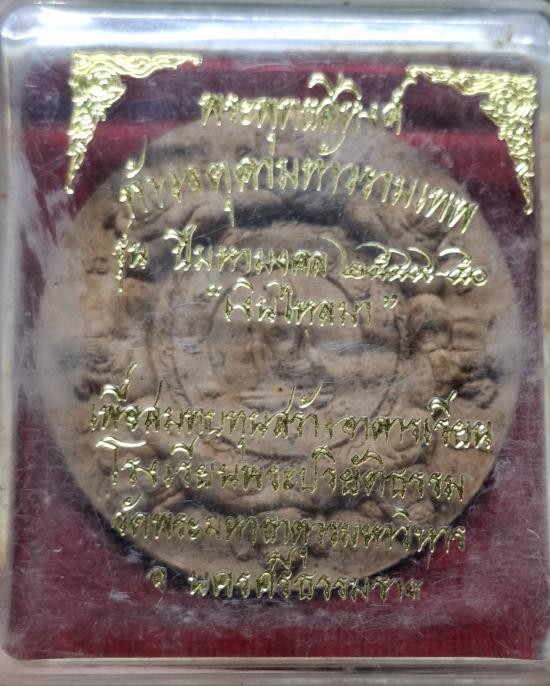 พระพุทธสิหิงค์
ท้าวจตุคามท้าวรามเทพ
รุ่น ปีมหามงคล ๒๕๔๙-๕๐
"เงินไหลมา"
เพื่อสมทบทุนสร้างอาคารเรียน
โรงเรียนพระปริยัติธรรม
วัดพระมหาธาตุวรมหาวิหาร
จ นครศรีธรรมราช